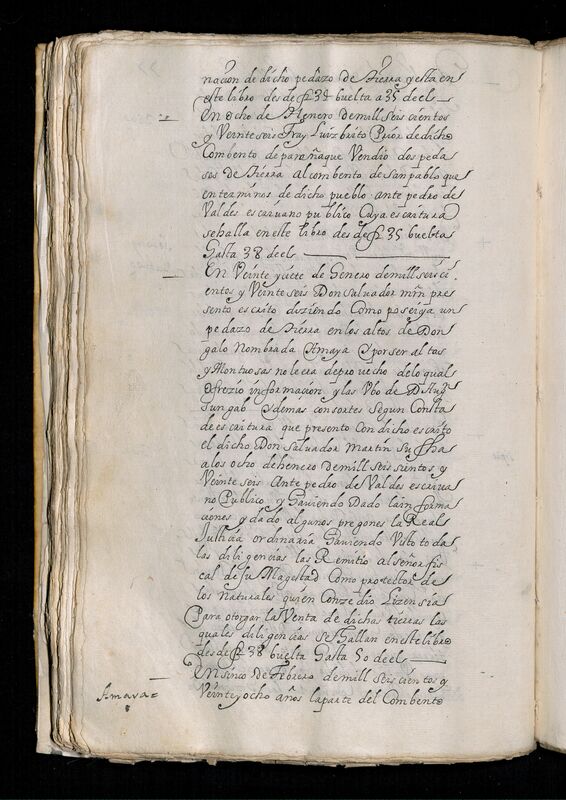 nacion de dicho pedazo de tierra y esta en
este libro desde f 34 buelta a 35 deel
En ocho de Henero de mill seis cientos
y Veinte seis Fray Luiz brito Prior de dicho
Combento de parañaque Vendio dos peda
sos de tierra al combento de san pablo que
en terminos de dicho pueblo ante pedro de
Valdes escriuano publico Cuya escritura
se halla en este libro desde f 35 buelta
hasta 38 deel
En Veinte y siete de Henero de mill seis ci
entos y Veinte seis Don salvador mrn pre
sento escrito diziendo Como poseiya un
pedazo de tierra en los altos de Don
galo Nombrada Amaya Y por ser altas
y Montuosas no le era de provecho de lo qual
ofrezio informacion y las Vbo de
sungab Y demas consortes segun Consta
de escritura que presento con dicho escrito
el dicho Don salvador martin su fha
a los ocho de henero de mill seis sientos y
Veinte seis Ante pedro de Valdes escriua
no Publico y haviendo Dado la informa
ciones y dado algunos pregones la Real
Justicia ordinaria haviendo Visto toda
las diligencias las Remitio al señor fis
cal de su Magestad Como protector de
los Naturales quien Conzedio Lizensia
Para otorgar la Venta de dichas tierras las
quales diligencias se hallan en este libro
desde f 38 buelta hasta 50 deel
En sinco de Febrero de mill seis cientos y
Amaya=
Veinte y ocho años la parte del Combento